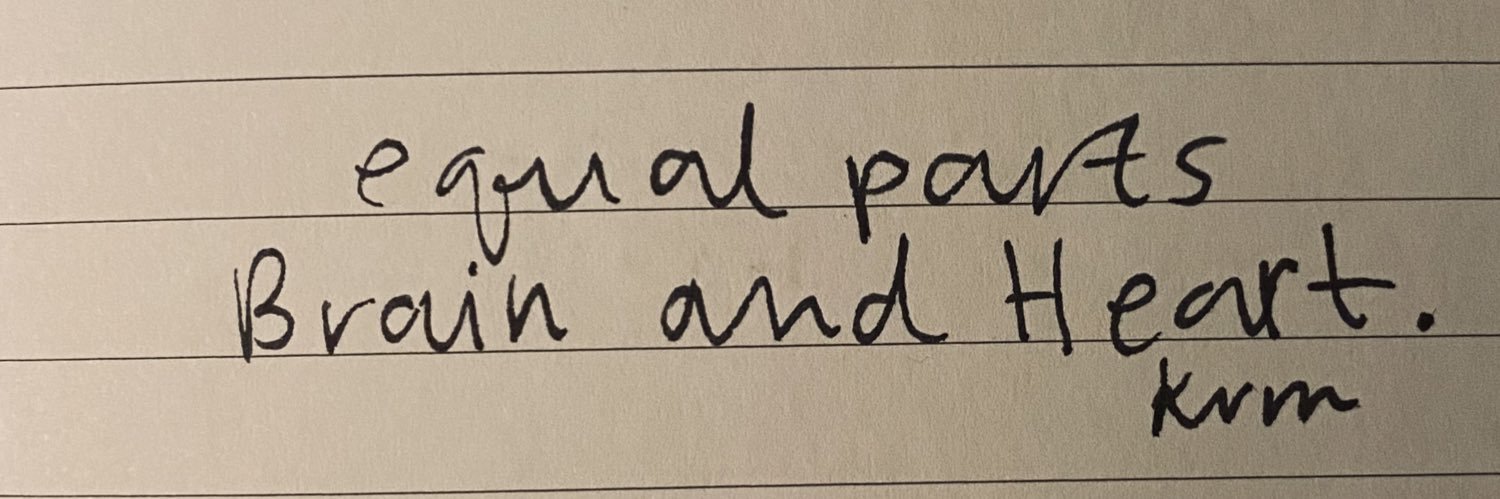 equal parts
Brain and Heart.
krm